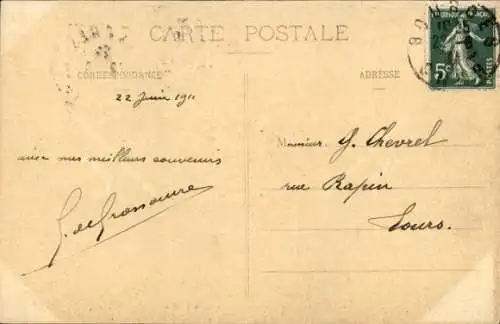 CARTE POSTALE
CORRESPONDANCE
ADRESSE
22 Juin 191
avec mes meilleurs souvenirs
G. de Grossouvre
Monsieur G. Chevret
rue Rapin
Tours.
5c